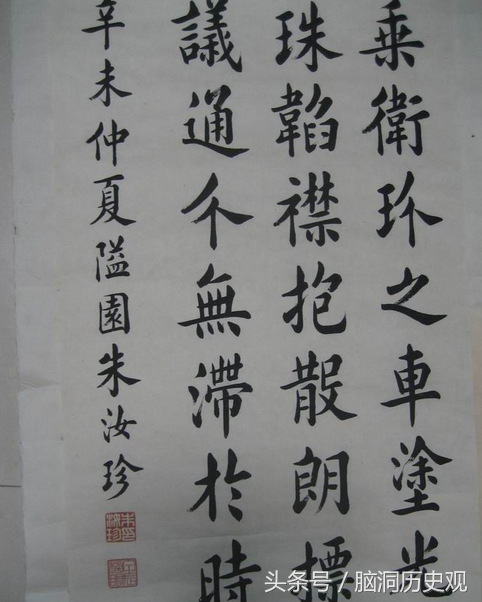 乘衛玠之車塗光
珠韜襟抱散朗標
議通介無滯於時
辛未仲夏隘園朱汝珍
頭条号／脑洞历史观